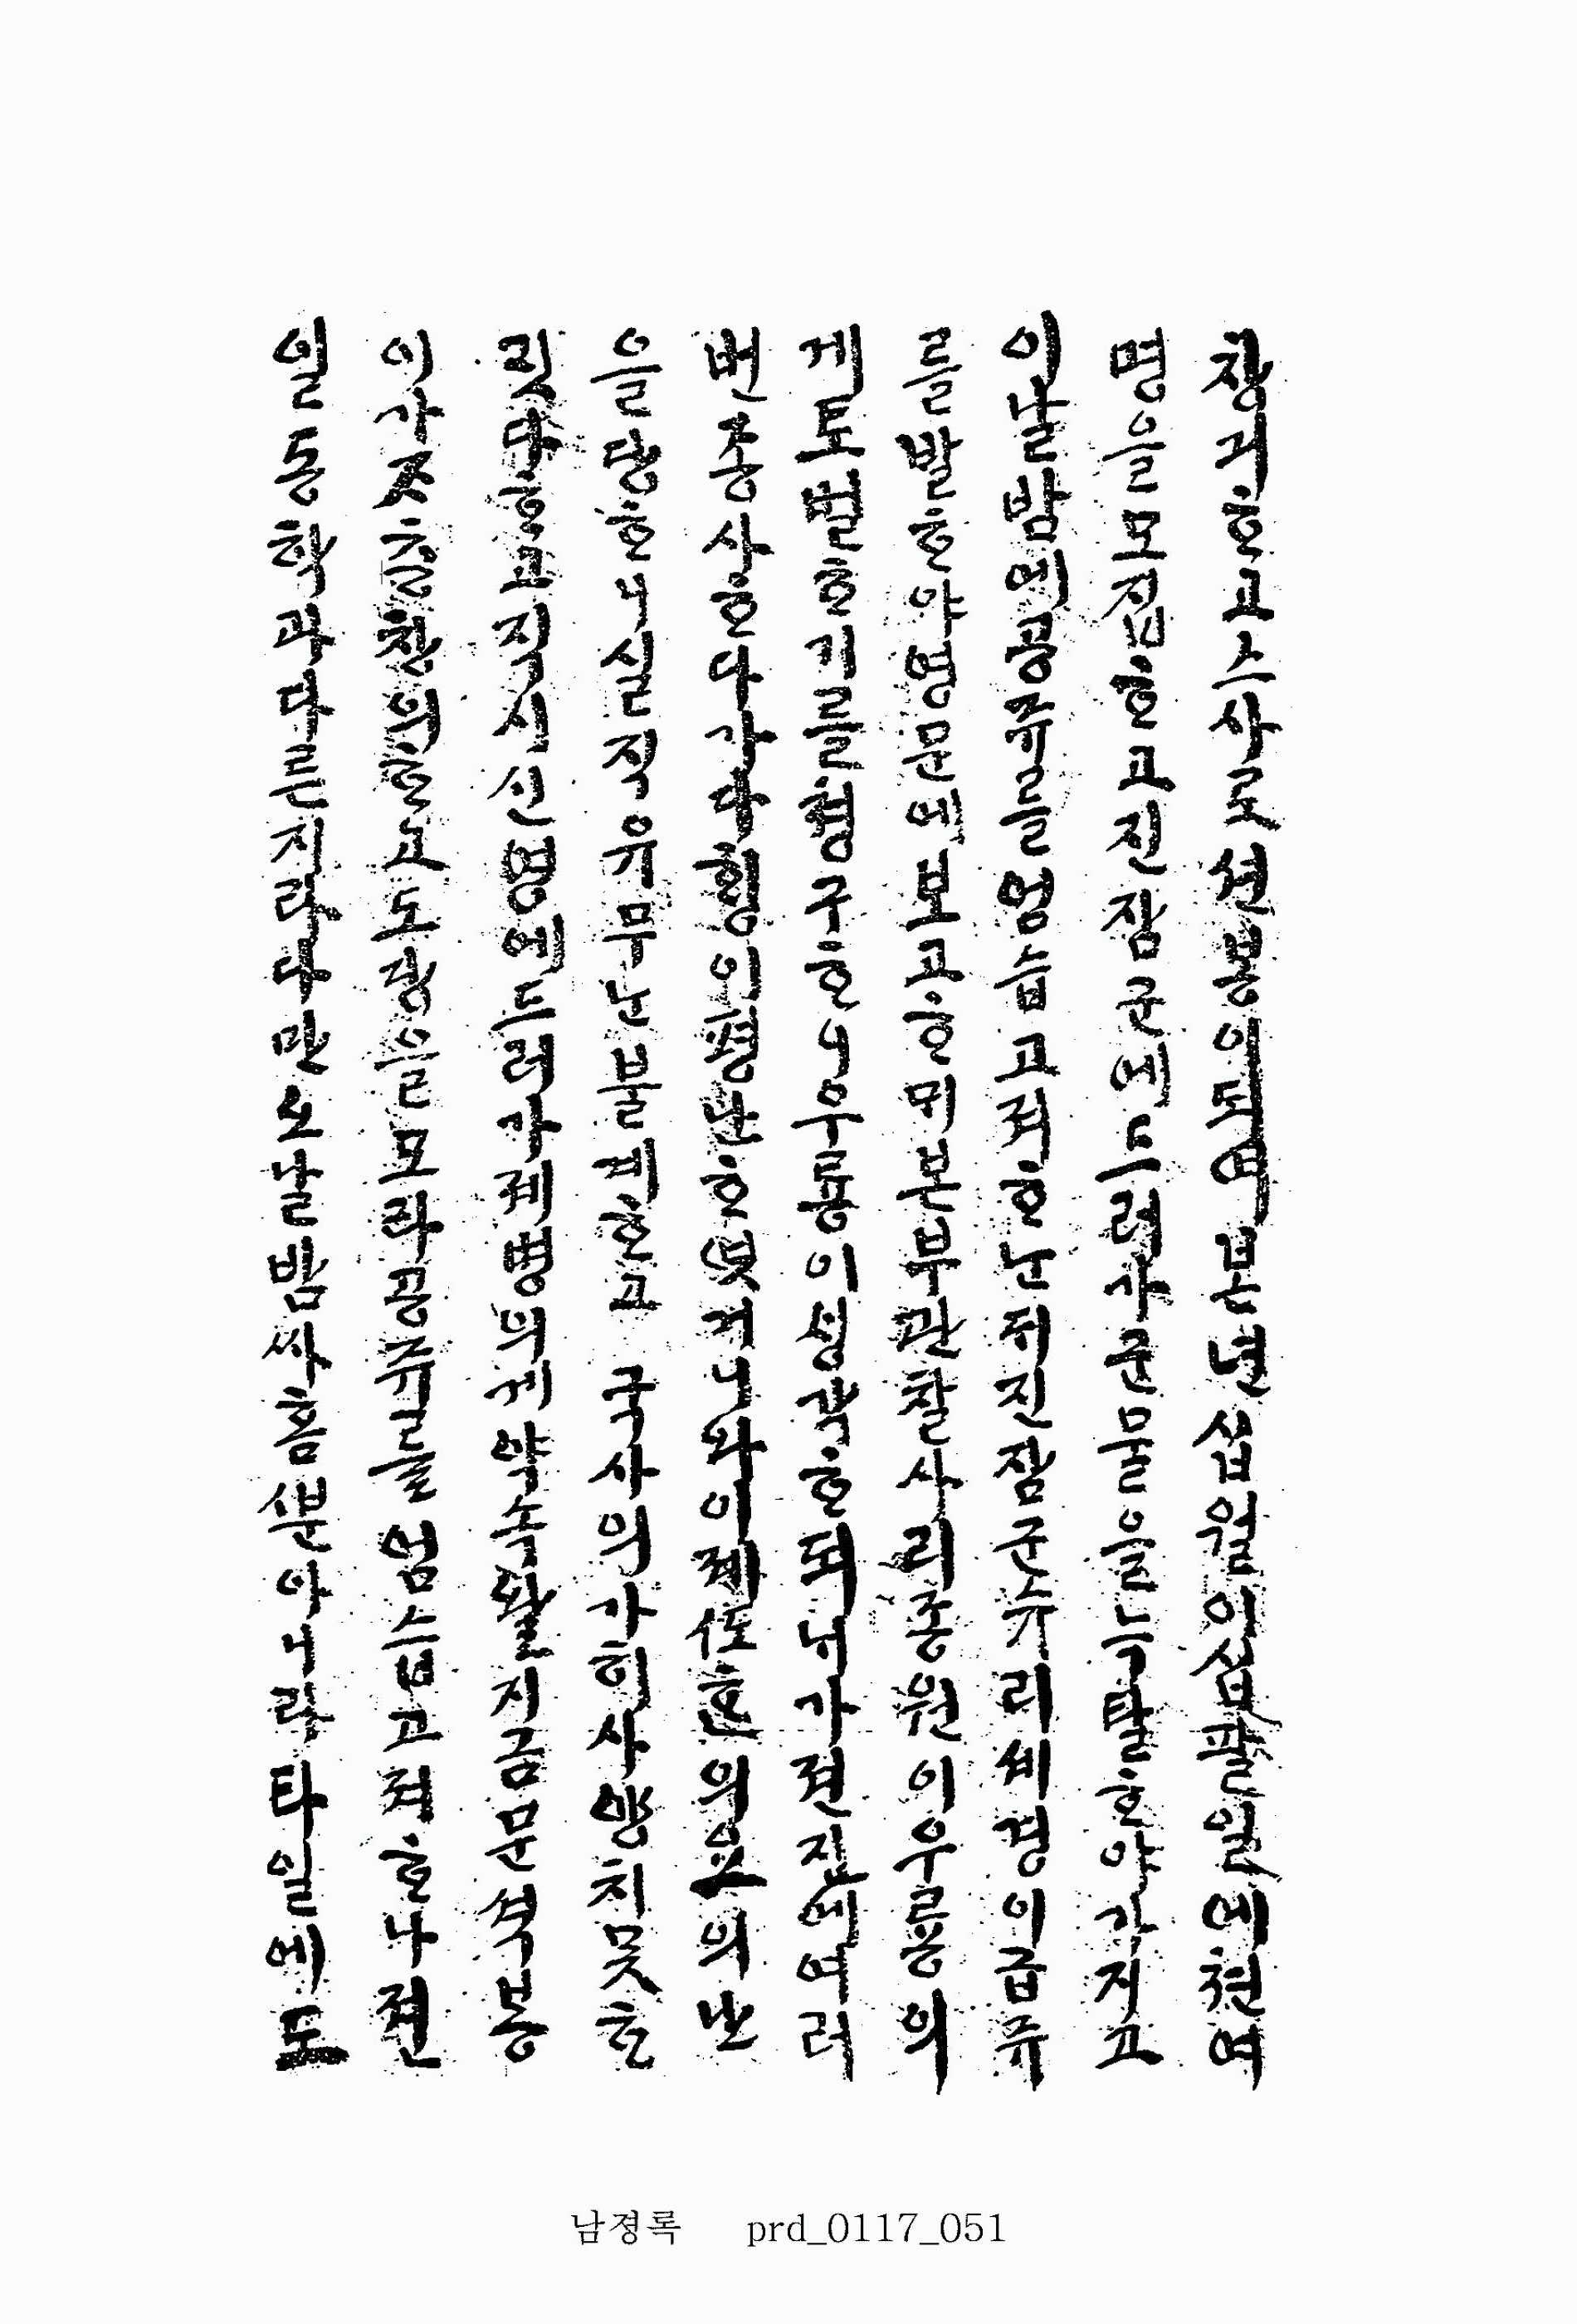 창긔ᄒᆞ고 스사로 션봉이 되여 본년 십월 이십팔일에 쳔여
명을 모집ᄒᆞ고 진잠군에 드러가 군물을 늑탈ᄒᆞ야 가지고
이날 밤에 공쥬를 엄습고져 ᄒᆞᄂᆞᆫ지 진잠군슈 리셰경이 급쥬
를 발ᄒᆞ야 영문에 보고ᄒᆞᄆᆡ 본부 관찰사 리종원이 우룡의
게 토벌ᄒᆞ기를 쳥구ᄒᆞ니 우룡이 싱각ᄒᆞ되 ᄂᆡ가 젼진에 여러
번 종사ᄒᆞ다가 다ᄒᆡᆼ이 평난ᄒᆞ엿거니와 이졔 또ᄒᆞᆫ 의요의 난
을 당ᄒᆞ니 실직 유무ᄂᆞᆫ 불계ᄒᆞ고 국사의 가히 사양치 못ᄒᆞ
릿다 ᄒᆞ고 직시 신영에 드러가 졔병의게 약속 왈 지금 문셕봉
이가 ᄌᆞ츌창의ᄒᆞ고 도당을 모라 공쥬를 엄습고져 ᄒᆞ나 젼
일 동학과 다른지라 다만 오날밤 싸홈ᄲᅮᆫ 아니라 타일에 도
남졍록 prd_0117_051